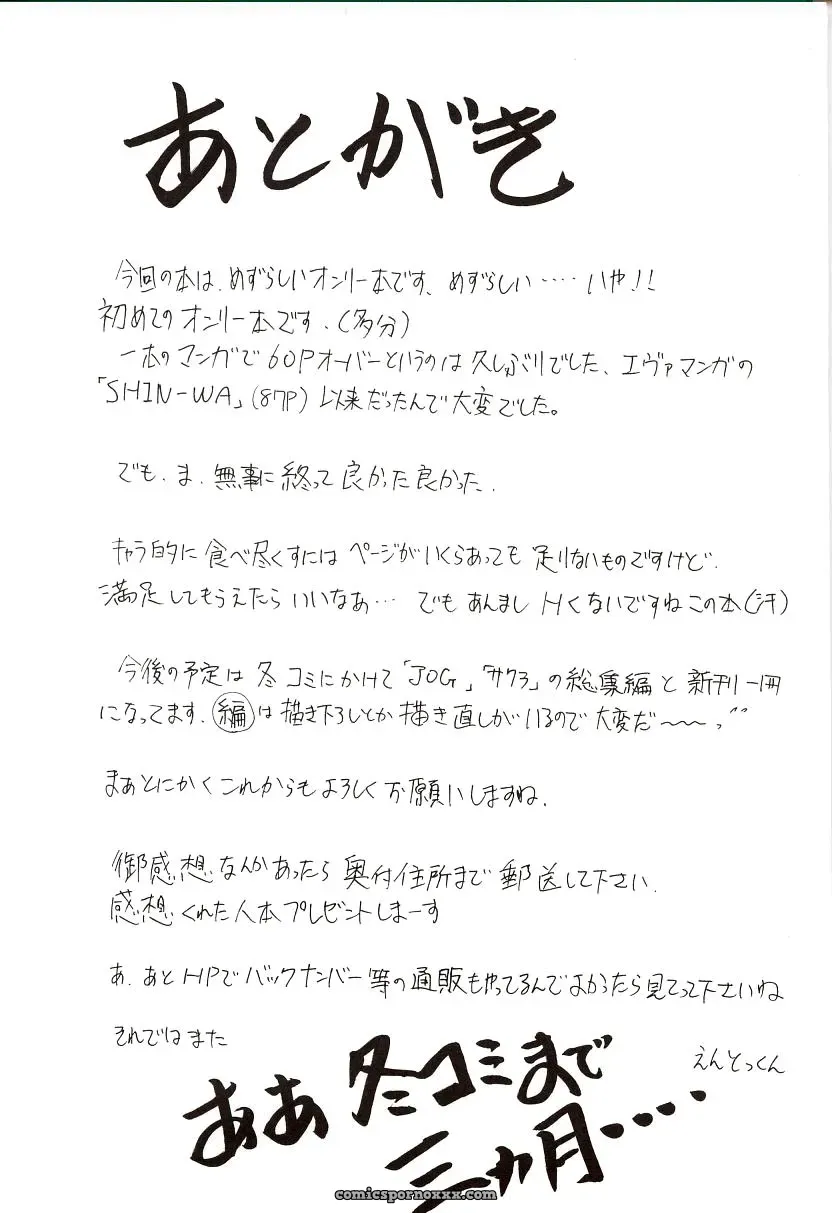 あとがき
今回の本は、めずらしいオンリー本です、めずらしい‥‥いや!!
初めてのオンリー本です.(多分)
一本のマンガで60Pオーバーというのは久しぶりでした、エヴァマンガの
「SHIN-WA」(87P)以来だったんで大変でした。
でも.ま.無事に終って良かった良かった.
キャラ的に食べ尽くすにはページがいくらあっても足りないものですけど.
満足してもらえたらいいなあ… でもあんましHくないですねこの本(汗)
今後の予定は冬コミにかけて「JOG」「サクラ」の総集編と新刊一冊
になってます.編は描き下ろしとか描き直しがいるので大変だ〜〜っ
まぁとにかくこれからもよろしくお願いしますね.
御感想なんかあったら奥付住所まで郵送して下さい.
感想くれた人本プレゼントしまーす
あ.あとHPでバックナンバー等の通販もやってるんでよかったら見てって下さいね
それではまた
えんとっくん
ああ冬コミまで
三ヵ月‥‥
comicspornoxxx.com